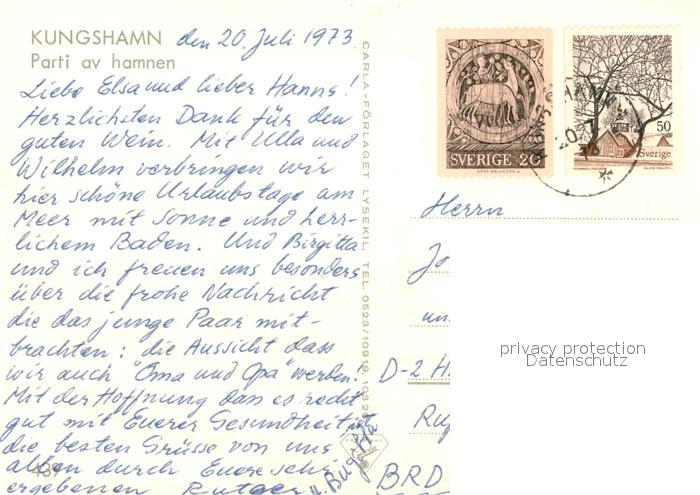 KUNGSHAMN den 20. Juli 1973
Parti av hamnen
Liebe Elsa und lieber Hanns!
Herzlichsten Dank für den
guten Wein. Mit Ulla und
Wilhelm verbringen wir
hier schöne Urlaubstage am
Meer mit Sonne und herr-
lichem Baden. Und Birgitta
und ich freuen uns besonders
über die frohe Nachricht
die das junge Paar mit-
brachten: die Aussicht dass
wir auch "Oma und Opa" werden!
Mit der Hoffnung dass es recht
gut mit Euerer Gesundheit ist
die besten Grüsse von uns
allen durch Euere sehr
ergebenen Rutger u. Birgitta
CARLA-FÖRLAGET LYSEKIL, TEL. 0523/10919, 103
SVERIGE 20
50
Sverige
20 7
Herrn
Jo
un
D-2 H
Ru
BRD
privacy protection
Datenschutz